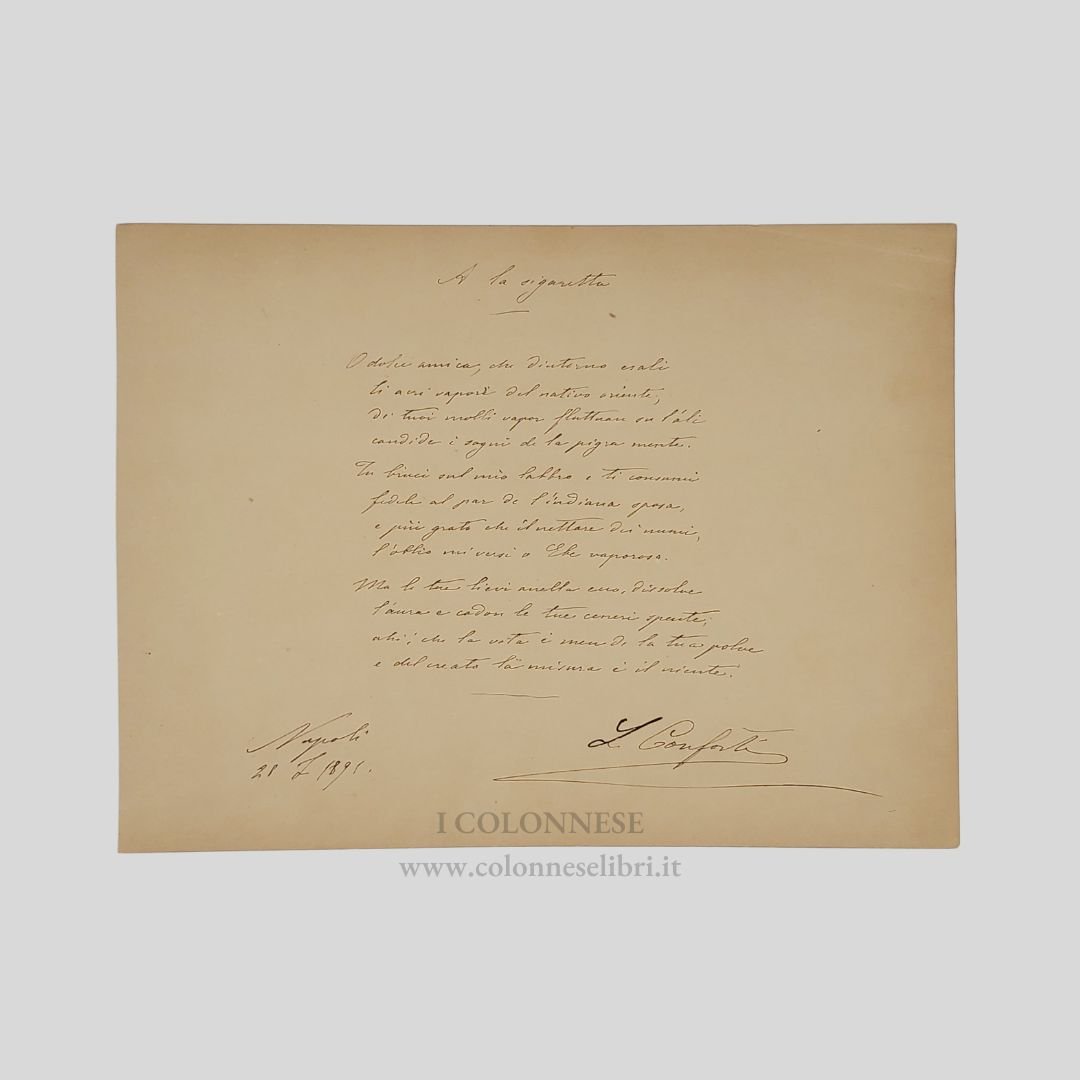 A la sigaretta
O dolce amica, che dintorno esali
li acri vapori del nativo oriente,
de' tuoi molli vapor fluttuan su l'ali
candide i sogni de la pigra mente.
Tu bruci sul mio labbro e ti consumi
fedele al par de l'indiana sposa,
e più grato che il nettare dei numi,
l'oblio mi versi o Ebe vaporosa.
Ma le tue lievi anella ecco, dissolve
l'aura e cadon le tue ceneri spente;
ahi! che la vita è men de la tua polve
e del creato la misura è il niente.
Napoli
28 1891.
L Conforti
I COLONNESE
www.colonneselibri.it